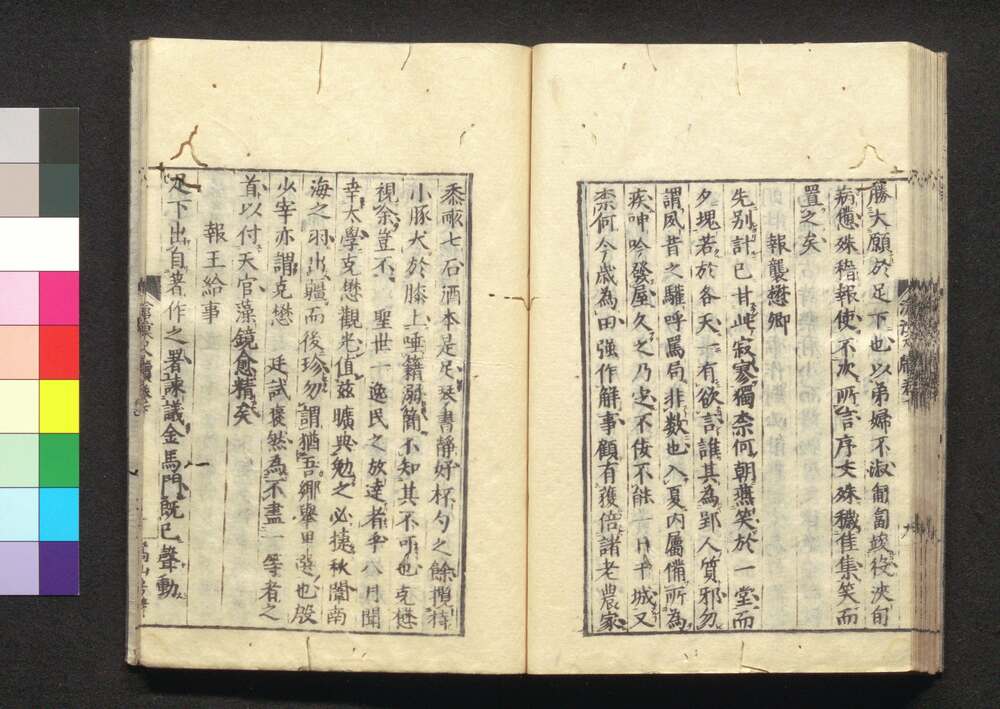 勝大願於足下也以弟婦不淑匍匐竣役浹旬
病憊殊稽報使不次所言序文殊穢佳集笑而
置之矣
報龔懋卿
先別計已甘此寂寥獨柰何朝燕笑於一堂而
夕塊若於各天一有欲言誰其為郢人質邪勿
謂夙昔之驩呼罵局非數也入夏內屬備所為
疾呻吟發屋久之乃定不佞不能一月干城又
柰何今歲為田強作解事顧有獲倍諸老農家
黍晐七石酒本是足琴書靜好杯勺之餘摜犉
小豚犬於膝上唾籍溺簡不知其不可也克懋
視余豈不 聖世一逸民之放達者乎八月聞
幸太學克懋觀光值茲曠典勉之必捷秋闈南
海之羽出疆而後珍勿謂猶吾鄉舉里選也殷
少宰亦謂克懋 廷試褎然為不盡一等者之
首以付天官藻鏡愈精矣
報王給事
足下出自著作之署諫議金馬門既已聲動